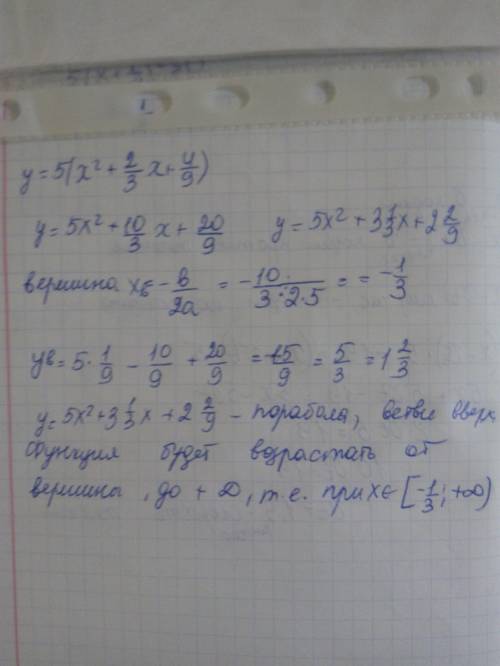 y = 5(x² + 2/3 x + 4/9)
y = 5x² + 10/3 x + 20/9    y = 5x² + 3 1/3 x + 2 2/9
вершина xв = -в/2а = -10/3·2·5 = = -1/3
yв = 5·1/9 - 10/9 + 20/9 = 15/9 = 5/3 = 1 2/3
y = 5x² + 3 1/3 x + 2 2/9 - парабола, ветви вверх,
функция будет возрастать от
вершины, до + ∞, т.е. при x∈[-1/3; +∞)